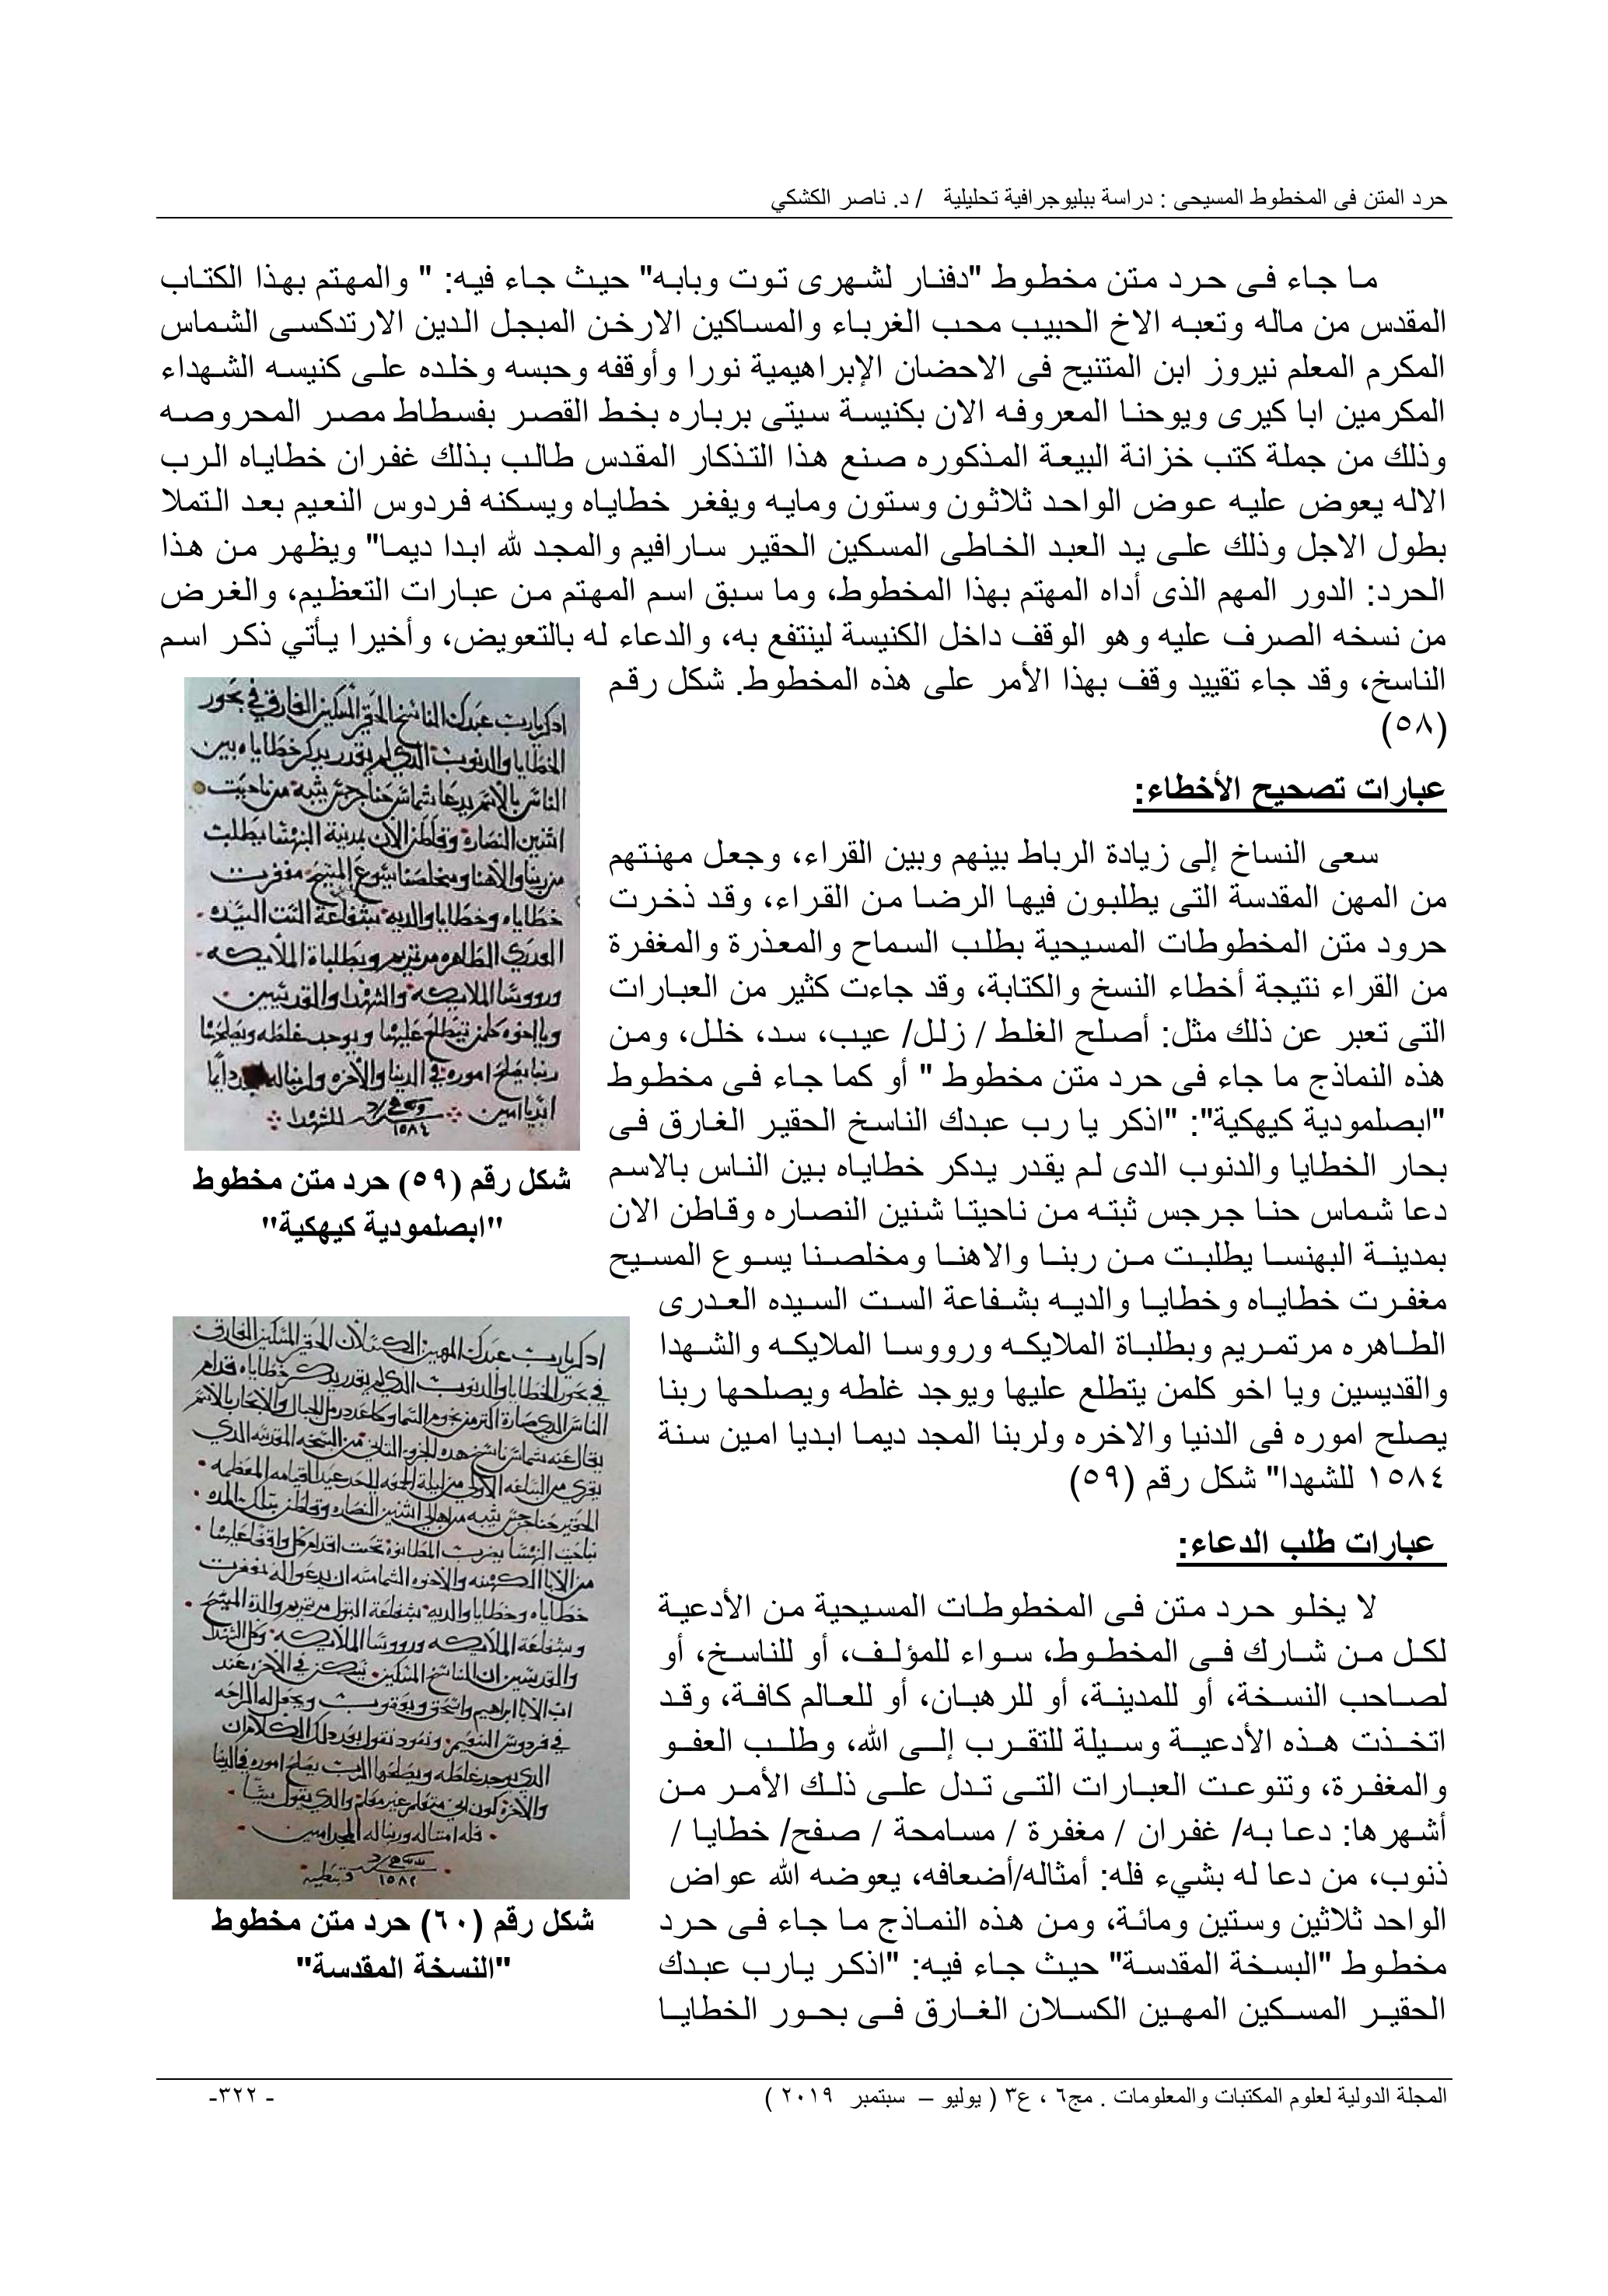 حرد المتن فى المخطوط المسيحى : دراسة ببليوجرافية تحليلية / د. ناصر الكشكي
ما جاء فى حرد متن مخطوط "دفنار لشهرى توت وبابه" حيث جاء فيه: " والمهتم بهذا الكتاب
المقدس من ماله وتعبه الاخ الحبيب محب الغرباء والمساكين الارخن المبجل الدين الارتدكسى الشماس
المكرم المعلم نيروز ابن المتنيح فى الاحضان الإبراهيمية نورا وأوقفه وحبسه وخلده على كنيسه الشهداء
المكرمين ابا كيرى ويوحنا المعروفه الان بكنيسة سيتى برباره بخط القصر بفسطاط مصر المحروصه
وذلك من جملة كتب خزانة البيعة المذكوره صنع هذا التذكار المقدس طالب بذلك غفران خطاياه الرب
الاله يعوض عليه عوض الواحد ثلاثون وستون ومايه ويفغر خطاياه ويسكنه فردوس النعيم بعد التملا
بطول الاجل وذلك على يد العبد الخاطى المسكين الحقير سارافيم والمجد لله ابدا ديما" ويظهر من هذا
الحرد: الدور المهم الذى أداه المهتم بهذا المخطوط، وما سبق اسم المهتم من عبارات التعظيم، والغرض
من نسخه الصرف عليه وهو الوقف داخل الكنيسة لينتفع به، والدعاء له بالتعويض، وأخيرا يأتي ذكر اسم
الناسخ، وقد جاء تقييد وقف بهذا الأمر على هذه المخطوط. شكل رقم
(٥٨)
عبارات تصحيح الأخطاء:
سعى النساخ إلى زيادة الرباط بينهم وبين القراء، وجعل مهنتهم
من المهن المقدسة التى يطلبون فيها الرضا من القراء، وقد ذخرت
حرود متن المخطوطات المسيحية بطلب السماح والمعذرة والمغفرة
من القراء نتيجة أخطاء النسخ والكتابة، وقد جاءت كثير من العبارات
التى تعبر عن ذلك مثل: أصلح الغلط / زلل/ عيب، سد، خلل، ومن
هذه النماذج ما جاء فى حرد متن مخطوط " أو كما جاء فى مخطوط
"ابصلمودية كيهكية": "اذكر يا رب عبدك الناسخ الحقير الغارق فى
بحار الخطايا والدنوب الدى لم يقدر يدكر خطاياه بين الناس بالاسم
دعا شماس حنا جرجس ثبته من ناحيتا شنين النصاره وقاطن الان
بمدينة البهنسا يطلبت من ربنا والاهنا ومخلصنا يسوع المسيح
مغفرت خطاياه وخطايا والديه بشفاعة الست السيده العدرى
الطاهره مرتمريم وبطلباة الملايكه ورووسا الملايكه والشهدا
والقديسين ويا اخو كلمن يتطلع عليها ويوجد غلطه ويصلحها ربنا
يصلح اموره فى الدنيا والاخره ولربنا المجد ديما ابديا امين سنة
١٥٨٤ للشهدا" شكل رقم (٥٩)
عبارات طلب الدعاء:
لا يخلو حرد متن فى المخطوطات المسيحية من الأدعية
لكل من شارك فى المخطوط، سواء للمؤلف، أو للناسخ، أو
لصاحب النسخة، أو للمدينة، أو للرهبان، أو للعالم كافة، وقد
اتخذت هذه الأدعية وسيلة للتقرب إلى الله، وطلب العفو
والمغفرة، وتنوعت العبارات التى تدل على ذلك الأمر من
أشهرها: دعا به/ غفران / مغفرة / مسامحة / صفح/ خطايا /
ذنوب، من دعا له بشيء فله: أمثاله/أضعافه، يعوضه الله عواض
الواحد ثلاثين وستين ومائة، ومن هذه النماذج ما جاء فى حرد
مخطوط "البسخة المقدسة" حيث جاء فيه: "اذكر يارب عبدك
الحقير المسكين المهين الكسلان الغارق فى بحور الخطايا
ادكر يارب عبدك الناسخ الحقير المسكين الغارق في بحور
الخطايا والدنوب الدي لم يقدر يدكر خطاياه بين
شكل رقم (٥٩) حرد متن مخطوط
"ابصلمودية كيهكية"
ادكر يارب عبدك المهين الكسلان الحقير المسكين الغارق
في بحور الخطايا والدنوب الدي لم يقدر يدكر خطاياه قدام
شكل رقم (٦٠) حرد متن مخطوط
"النسخة المقدسة"
المجلة الدولية لعلوم المكتبات والمعلومات . مج٦ ، ع٣ ( يوليو – سبتمبر ٢٠١٩ )
- ٣٢٢-